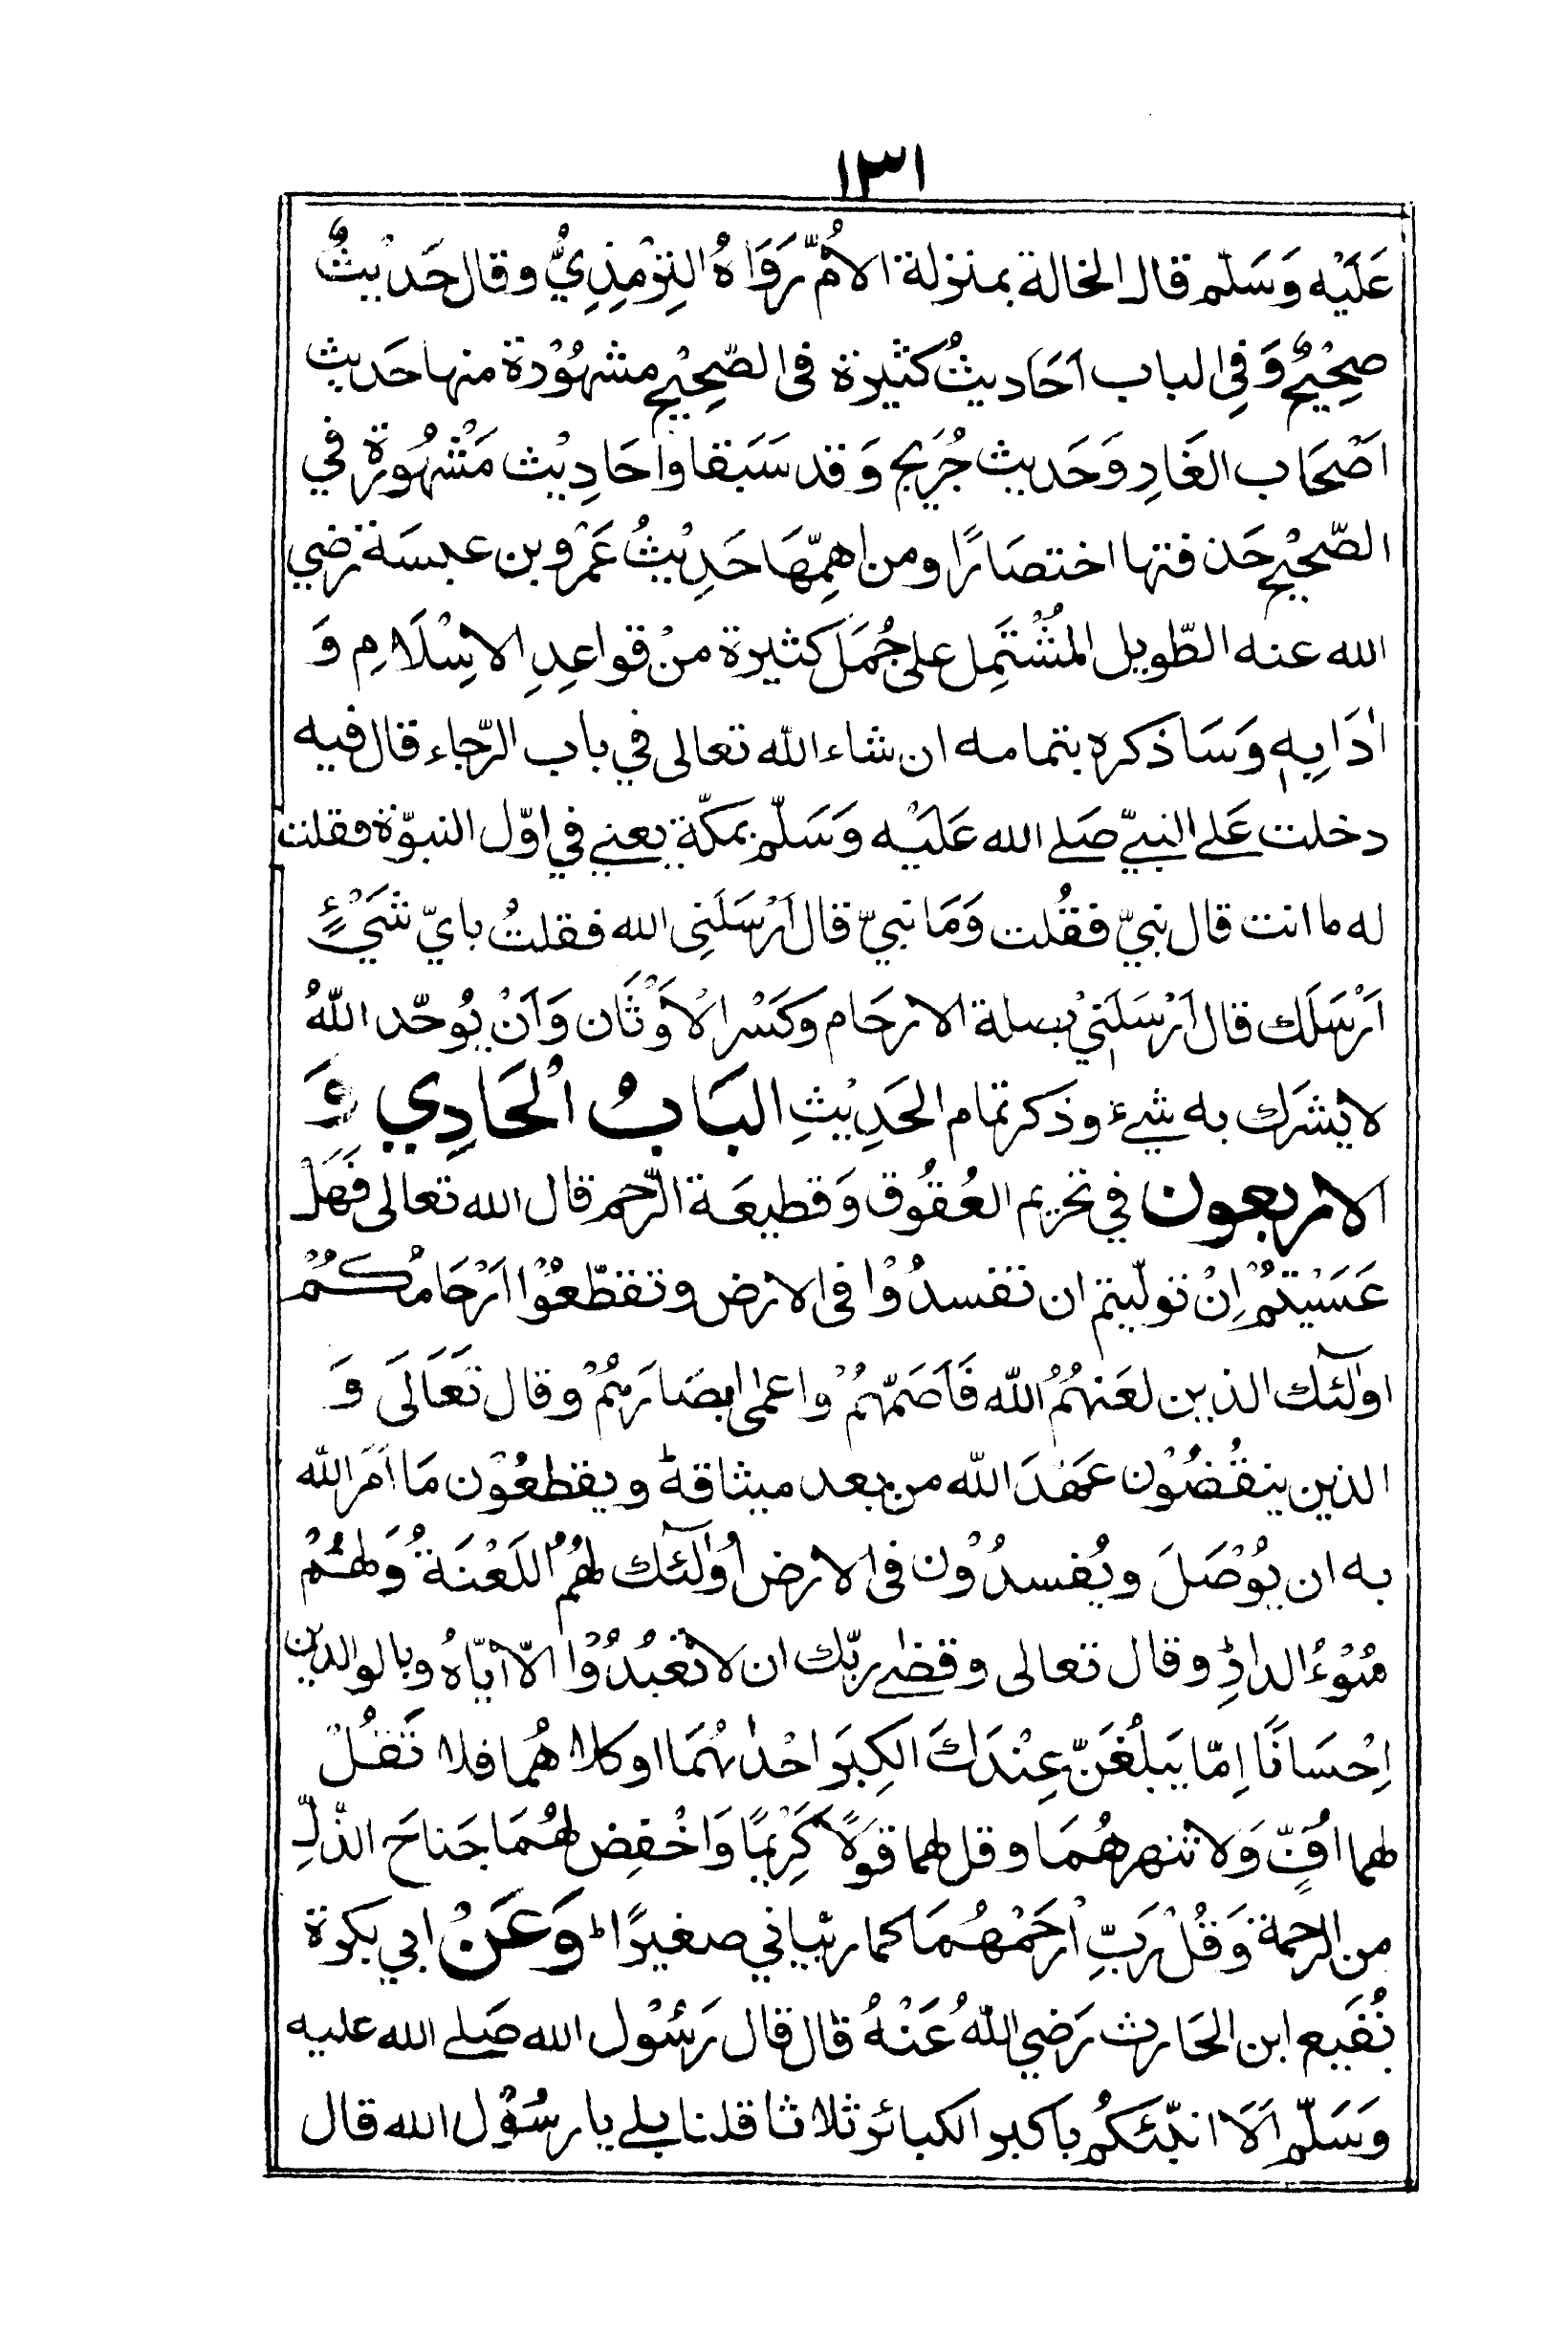 ١٣١
عَلَيْه وَسَلّم قال الخالة بمنزلة الأُمّ رَوَاهُ التِرْمِذِيُّ وقال حَديْثٌ
صحِيْحٌ وَفِي الباب اَحَاديثُ كثيرة فى الصّحِيْحِ مشهُوْرة منها حَديث
اَصْحَاب الغَارِ وَحَديث جُرَيج وَقد سَبَقا واحَادِيْث مَشْهُورة في
الصّحِيْحِ حَذفتها اختصَارًا ومن اهمِّهَا حَدِيْثُ عَمْرو بن عبسَة رَضي
الله عنه الطّويل المُشْتَمِل على جُمَل كثيرة منْ قواعِدِ الاسْلَامِ وَ
اٰدَابِهٖ وَسَاذكره بتمامه ان شاء الله تعالى في باب الرّجاء قال فيه
دخلت عَلى النبيّ صَلى الله عَلَيْه وَسَلّم بمكّة يعني في اوّل النبوّة فقلت
له ما انت قال نبيّ فقُلت وَمَا نبيّ قال اَرْسَلَنِى الله فقلتُ بايّ شَيْءٍ
اَرْسَلَك قال اَرْسَلَنِيْ بصلة الارحَام وكَسْر الْاَوْثَان وَاَنْ يُوحّد اللهُ
لا يشرَك به شيء وذكر تمام الحَدِيْثِ البَابُ الْحَادِي وَ
الاربعون في تحريم العُقُوق وَقطيعَة الرّحم قال الله تعالى فَهَلْ
عَسَيْتُمْ اِنْ تولّيتم ان تفسدُوْا فى الارض وتقطّعُوْا اَرْحَامُكُمْ
اولٰٓئك الذين لعَنهُمُ الله فَاَصَمّهُمْ واعمٰى ابصَارَهُمْ وقال تَعَالَى وَ
الذين ينقُضُوْن عَهْدَ الله من بعد ميثاقهٖ ويقطعُوْن مَا اَمَر الله
به ان يُوْصَلَ ويُفسدُوْن فى الارض اُولٰٓئك لهُمُ اللَعْنَةُ وَلهُمْ
سُوْءُ الدارِ وقال تعالى وقضٰى ربّك ان لا تعْبُدُوْا الّا ايّاهُ وبالوالدين
اِحْسَانًا اِمّا يَبلُغَنّ عِنْدَكَ الكِبَر احْدٰهُمَا او كلاهُما فلا تَقُلْ
لهما اُفٍّ وَلا تنهرهُمَا وقل لهما قَوْلًا كَرِيْمًا وَاخْفِض لهُمَا جَناحَ الذّلِّ
من الرحمة وَقُلْ رَبِّ ارْحَمْهُمَا كما ربّياني صغيرًا وَعَنْ ابي بكرة
نُفَيع ابن الحَارث رَضي اللهُ عَنْهُ قال قال رَسُوْل الله صَلى الله عليه
وَسَلّم اَلَا انبّئكُم باكبر الكبائر ثلاثا قلنا بلى يا رسُوْل الله قال